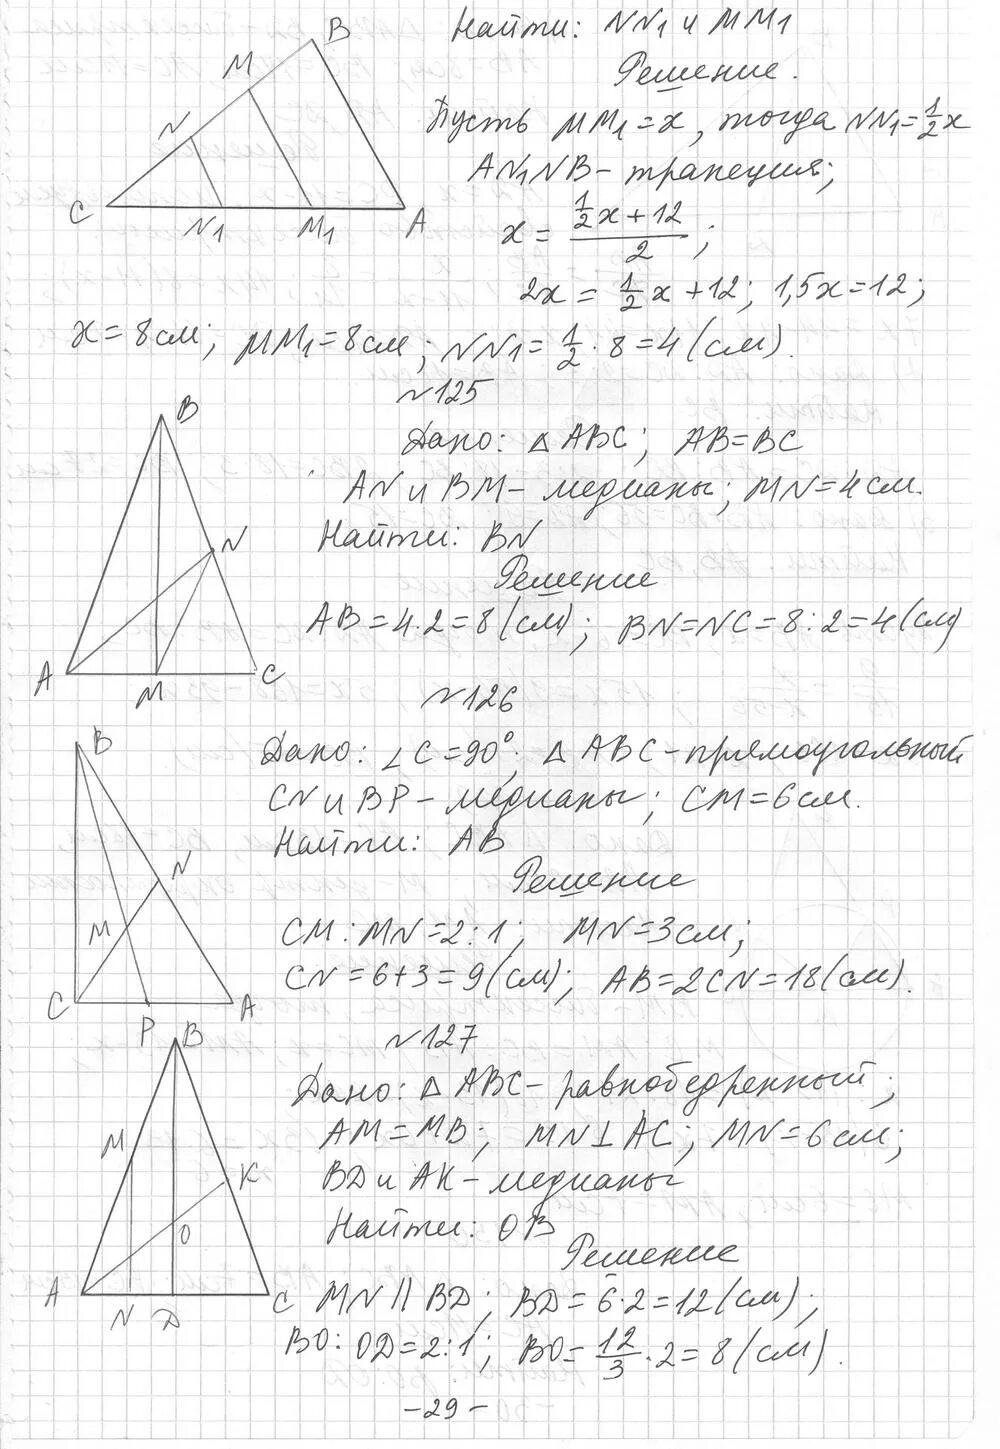 Найти: NN₁ и MM₁
Решение.
Пусть MM₁ = x, тогда NN₁ = 1/2 x
AN₁NB - трапеция;
x = (1/2 x + 12)/2 ;
2x = 1/2 x + 12; 1,5x = 12;
x = 8 см; MM₁ = 8 см; NN₁ = 1/2 · 8 = 4 (см).
B
M
N
C
N₁
M₁
A
№125
Дано: △ABC; AB = BC
AN и BM - медианы; MN = 4 см.
Найти: BN
Решение
AB = 4·2 = 8 (см); BN = NC = 8:2 = 4 (см)
B
N
A
M
C
№126
Дано: ∠C = 90°; △ABC - прямоугольный
CN и BP - медианы; CM = 6 см.
Найти: AB
Решение
CM : MN = 2:1; MN = 3 см;
CN = 6+3 = 9 (см); AB = 2CN = 18 (см).
B
N
M
C
P
A
№127
Дано: △ABC - равнобедренный;
AM = MB; MN ⊥ AC; MN = 6 см;
BD и AK - медианы
Найти: OB
Решение
MN || BD; BD = 6·2 = 12 (см);
BO : OD = 2:1; BO = 12/3 · 2 = 8 (см).
B
M
K
O
A
N
D
C
-29-